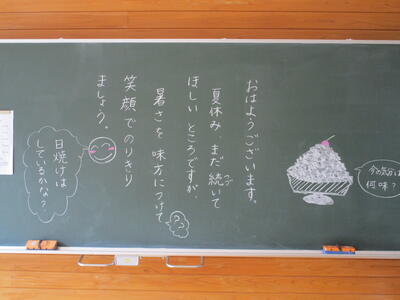 おはようございます。
夏休み、まだ続いて
ほしいところですが、
暑さを味方につけて
笑顔でのりきり
ましょう。
今の気分は
何味？
日焼けは
しているかな？